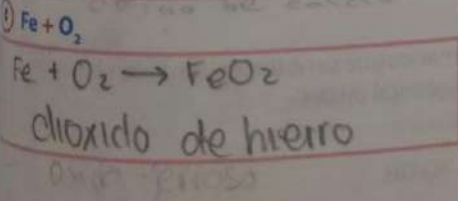 ① Fe + O₂
Fe + O₂ → FeO₂
dioxido de hierro